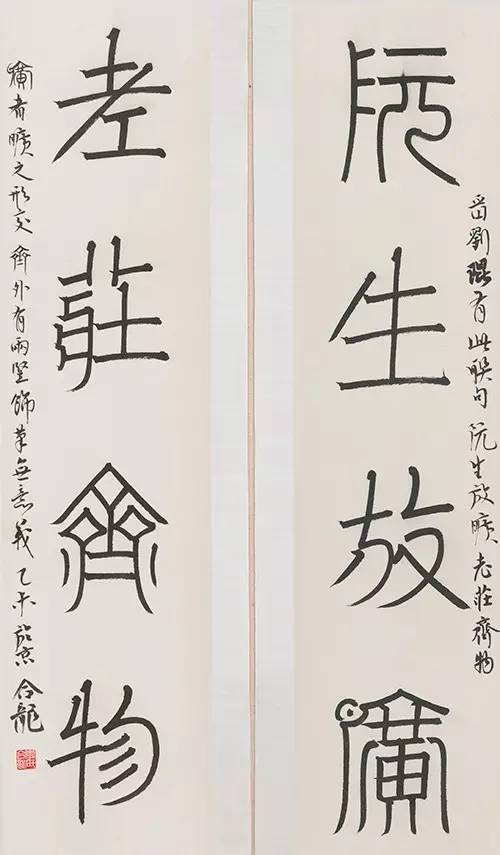 阮生放曠
老莊齊物
晉劉琨有此聫句 阮生放曠 老莊齊物
者曠之形变 齊外有兩竖飾筆無意義 乙未於京 合龍